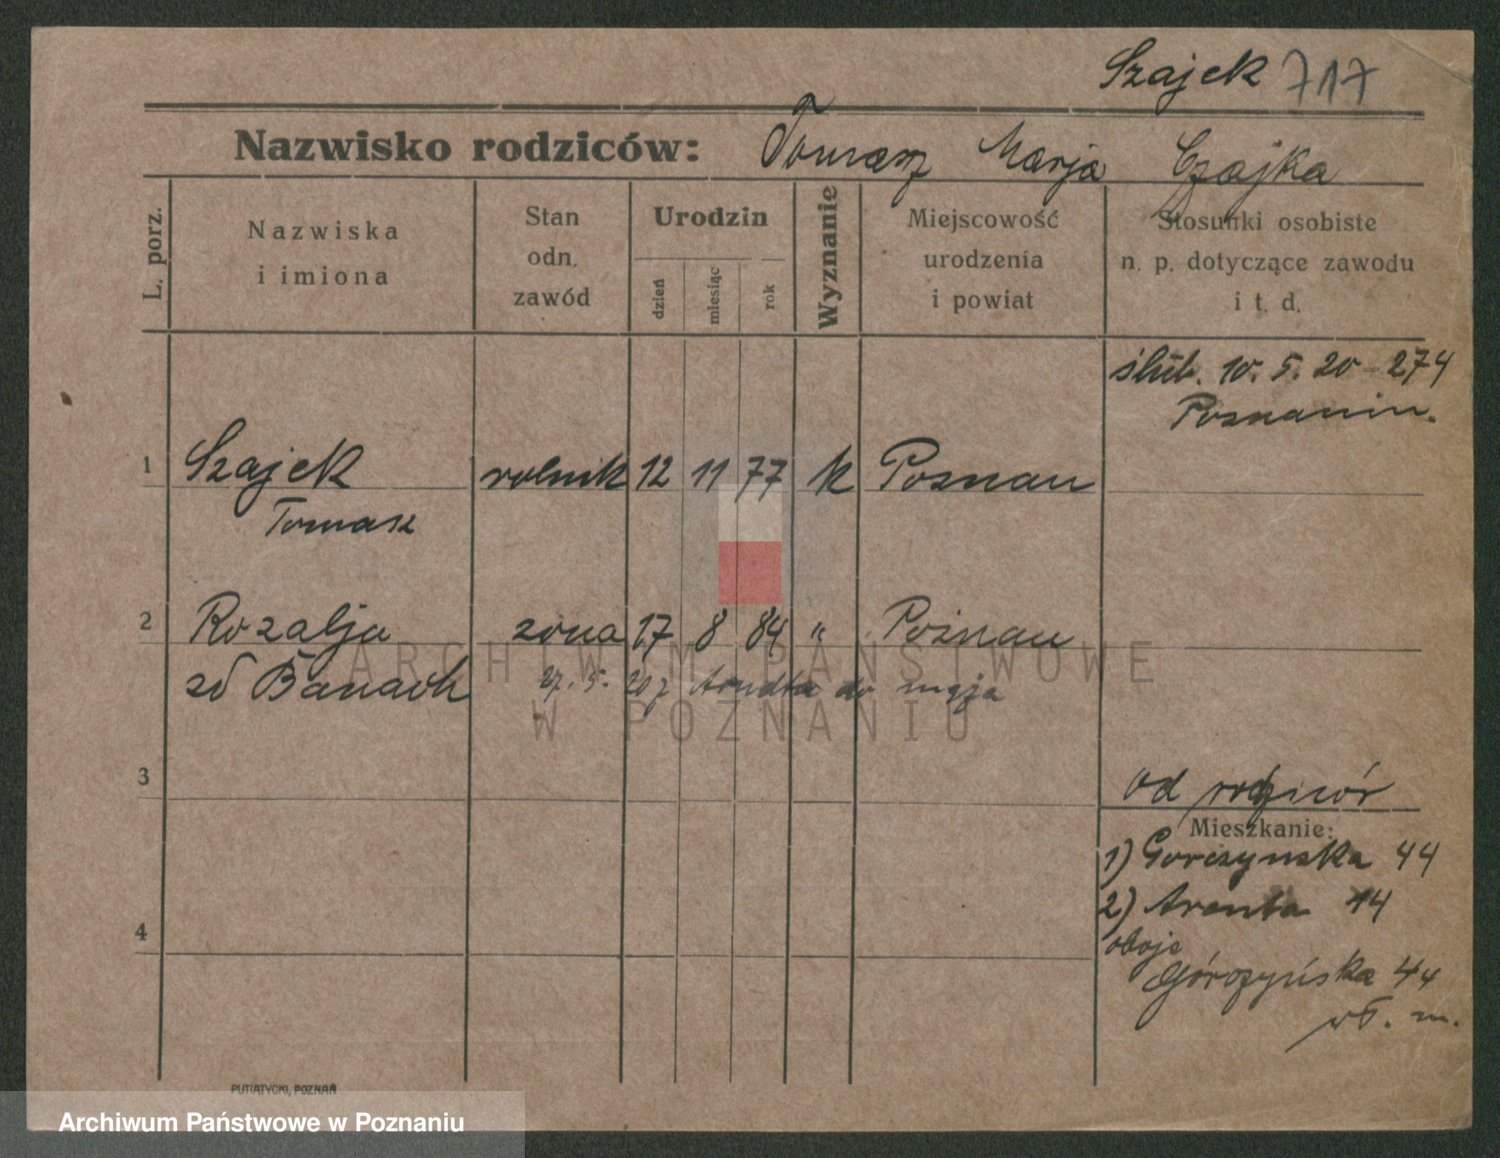 Szajek 717
Nazwisko rodziców: Tomasz Marja Czajka
L. porz.
Nazwiska
i imiona
Stan
odn.
zawód
Urodzin
dzień
miesiąc
rok
Wyznanie
Miejscowość
urodzenia
i powiat
Stosunki osobiste
n. p. dotyczące zawodu
i t. d.
ślub. 10. 5. 20 - 274
Poznaniu.
1 Szajek rolnik 12 11 77 k Poznan
Tomasz
2 Rozalja zona 17 8 84 " Poznan
zd Banach 27. 5. 20 z Arndta do męja
ARCHIWUM PAŃSTWOWE
W POZNANIU
3
od rodziców
Mieszkanie:
1) Gorczynska 44
2) Arenta 14
4
oboje
Górczyńska 44
wł. m.
PUTIATYCKI, POZNAŃ
Archiwum Państwowe w Poznaniu